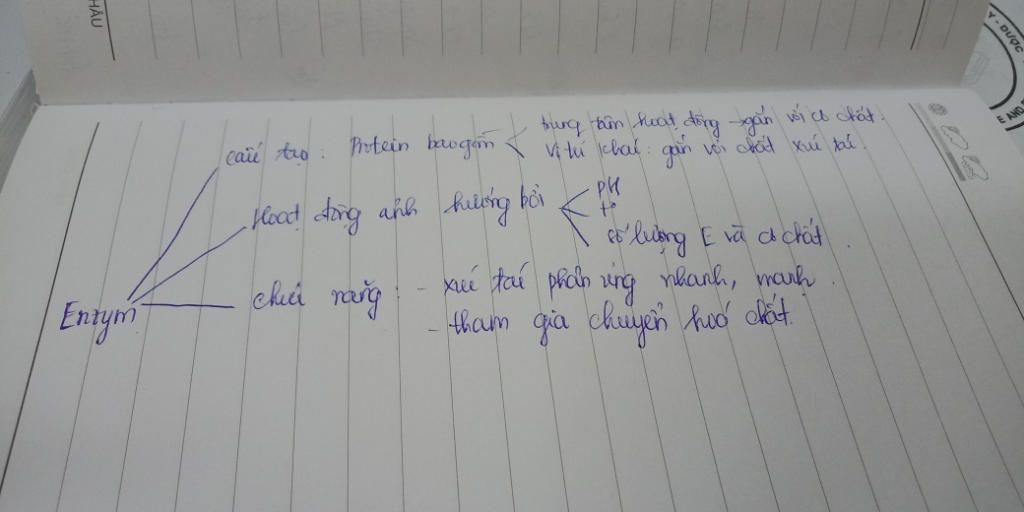 HÂU
Y - DƯỢC
E AND
Cấu tạo : Protein bao gồm
trung tâm hoạt động → gắn với cơ chất.
vị trí khác : gắn với chất xúc tác.
Hoạt động ảnh hưởng bởi
pH
t°
số lượng E và cơ chất .
Enzym
chức năng : - xúc tác phản ứng nhanh, mạnh .
- tham gia chuyển hoá chất.